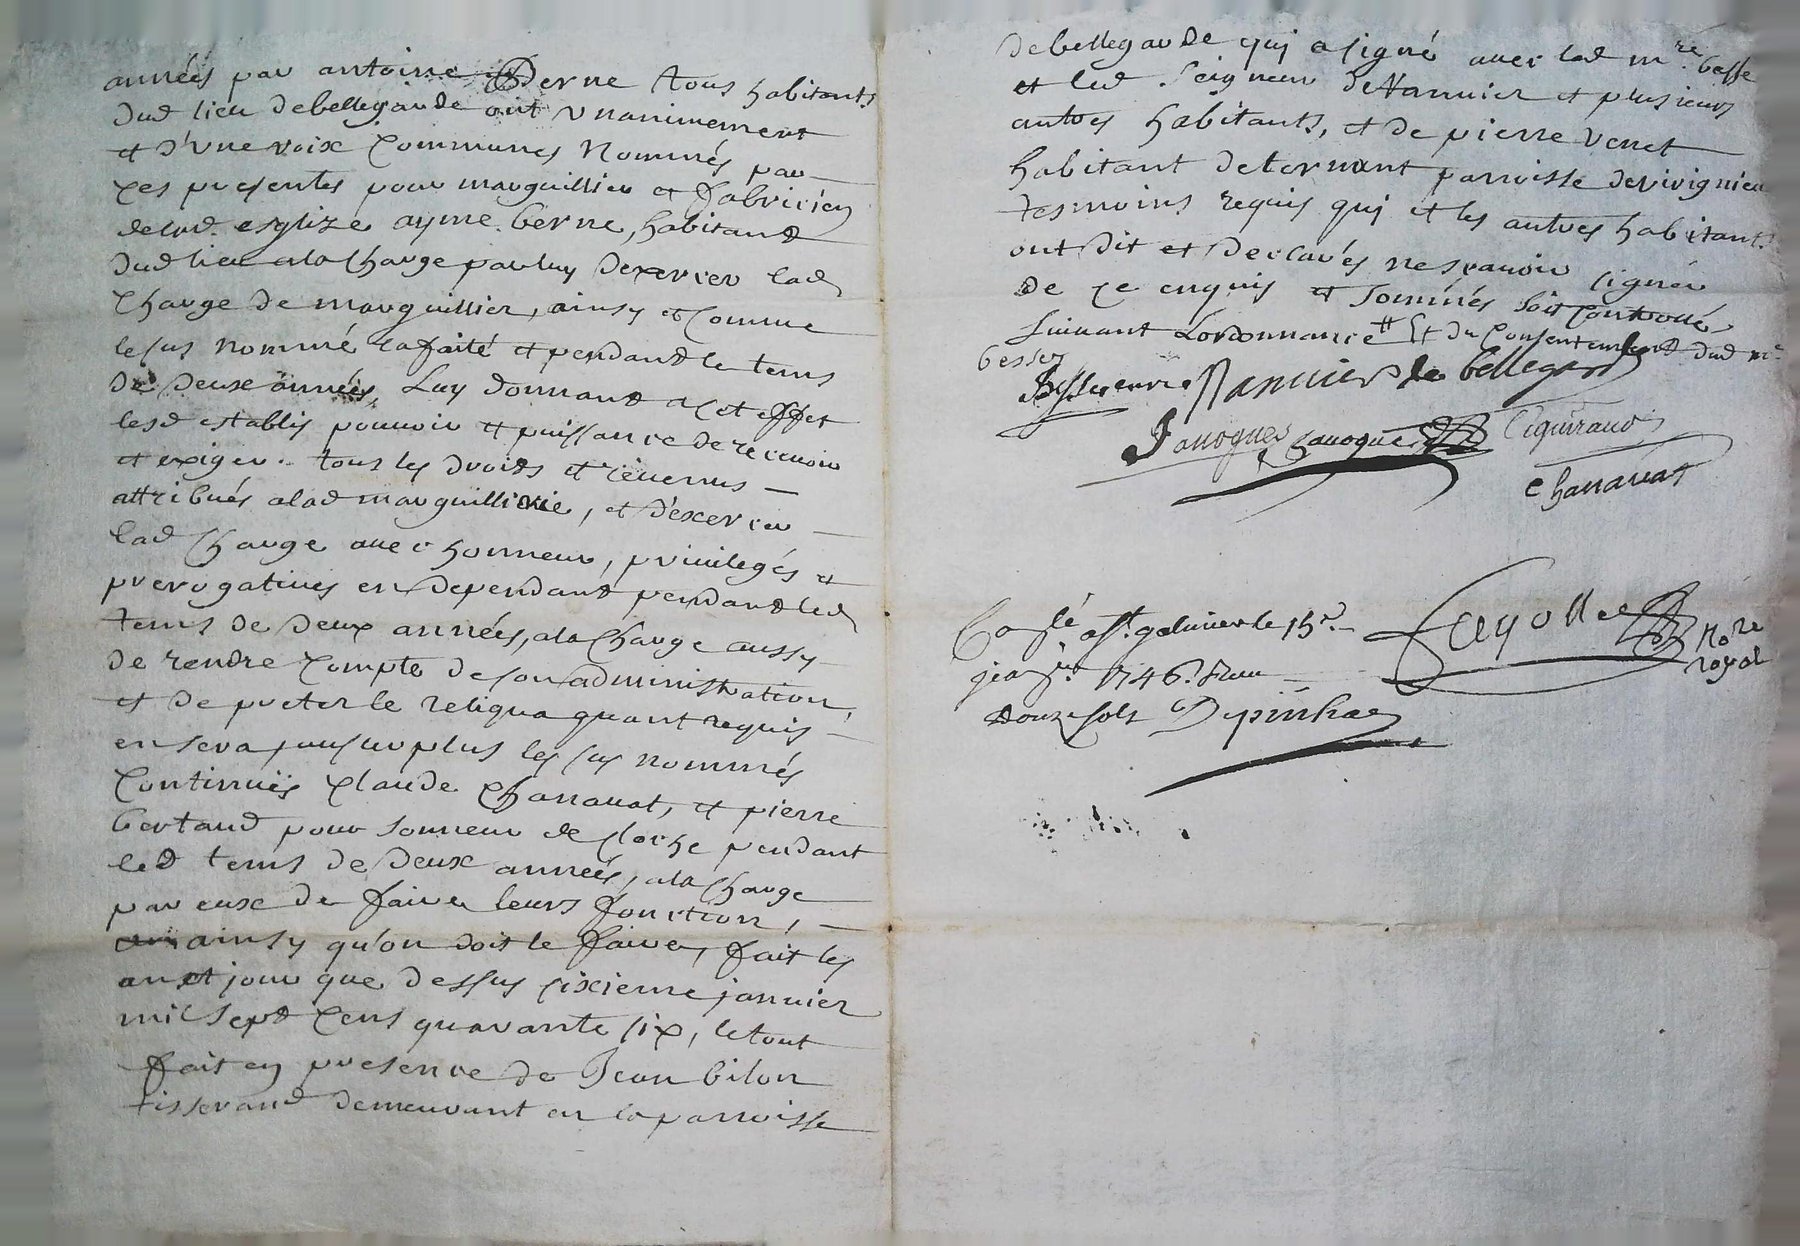 années par antoine Berne tous habitants
dud lieu debellegarde ont Unanimement
et d'une voix Communes Nommés par
ces presentes pour marguillier et fabricien
delad. esglize ayme berne, habitant
dud lieu ala Charge parluy dexercer lad
Charge de marguillier, ainsy et Comme
lesus nommé lafaité et pendant le tems
de deux années, Luy donnant acet effet
lesd establis pouvoir et puissance de recevoir
et exiger. tous les droits et revenus
attribués alad marguillierie, et d'exercer
lad Charge avec honneur, privileges et
prerogatives en dependant pendant led
tems de deux années, ala Charge aussy
de rendre Compte de son administration,
et de preter le reliqua quant requis
en sera, surplus les sus nommés
Continués Claude Chanavat, et pierre
bertaud pour sonneur de Cloche pendant
led tems de deux années, ala Charge
par eux de faire leurs fonction,
ainsy qu'on doit le faire, fait les
an et jour que dessus sixieme janvier
mil sept Cens quarante six, le tout
fait en presence de Jean bilon
tisserand demeurant en la parroisse
debellegarde quj a signé avec led mre. besse
et led. Seigneur deNanvier et plusieurs
autres habitants, et de pierre venet
habitant deternant parroisse derivignieu
tesmoins requis quj et les autres habitants
ont dit et declarés nesçavoir signer
de ce enquis et sommés soit Controllé
suivant Lordonnance # Et du Consentement dud mre
bessey
Nanvier de bellegarde
Fauogues Ciguirand
Chanavat
Conlé. a St. galmier le 15e.
janer. 1746. Reçu
douze sols Depinhac
Feyolle Nore
royal